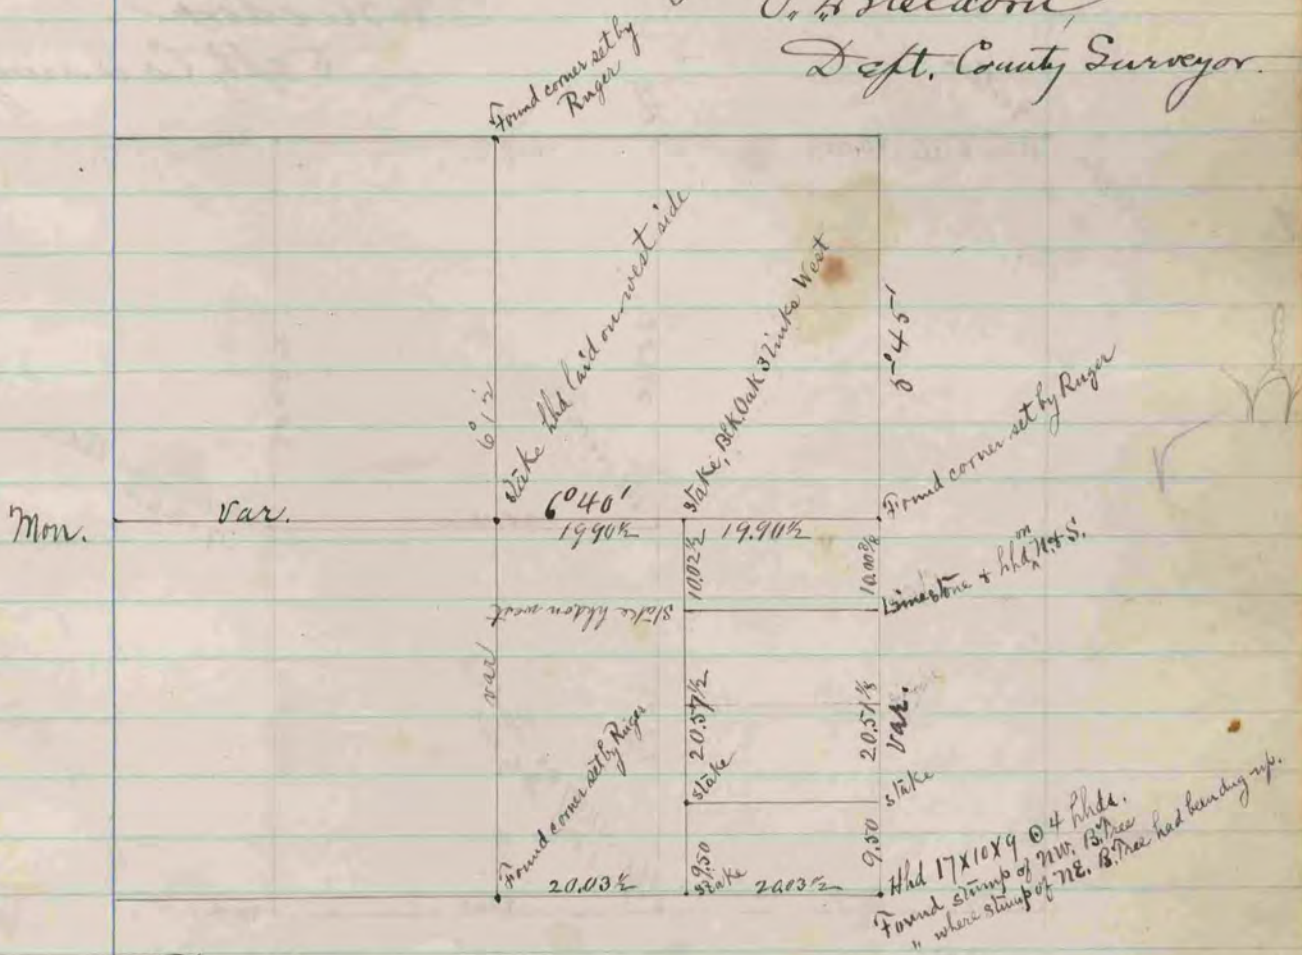 Dept. County Surveyor.
Found corner set by
Ruger
Stake hhd laid on west side
Stake, Blk. Oak 3 links West
5° 45'
6° 12'
Found corner set by Ruger
Mon.
var.
6° 40'
19.90½
19.90½
10.02½
10.00⅜
Limestone + hhd on N. & S.
Stake hhd on west
var
20.57½
20.51⅛
var.
stake
stake
Found corner set by Ruger
9.50
stake
9.50
20.03½
20.03½
Hhd 17x10x9 ⊙ 4 hhds.
Found stump of NW. B. Tree
" where stump of NE. B. Tree had been dug up.